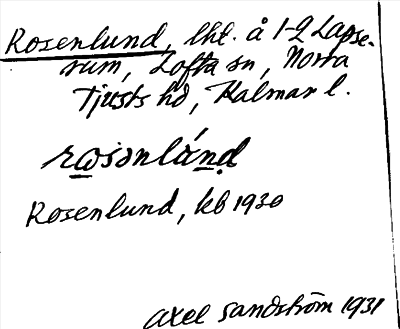 Rosenlund, lht. å 1-2 Lapse-
rum, Lofta sn, Norra
Tjusts hd, Kalmar l.
Rosenlund, kb 1930
Axel Sandström 1931